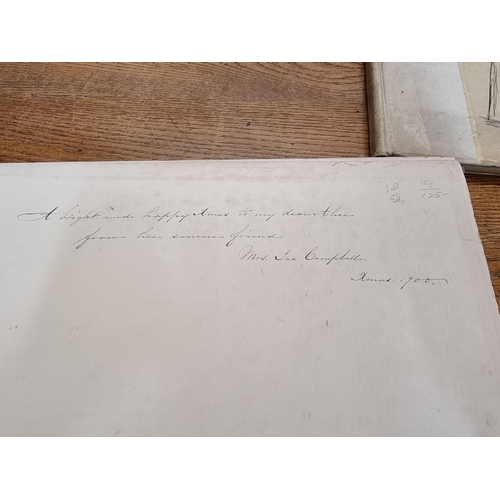 A bright and happy Xmas to my dear Alice
from her sincere friend
Mrs Jas Campbell.
Xmas. 1900.
125